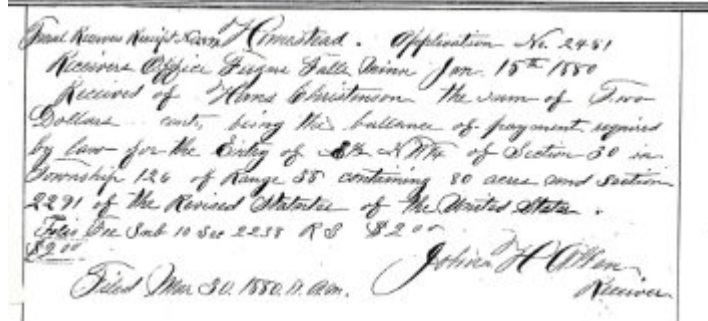 Final Receivers Receipt No. Homestead. Application No. 2481
Receivers Office Fergus Falls Minn Jan. 15th 1880
Received of Hans Christenson the sum of Two
Dollars cents, being the ballance of payment required
by law for the Entry of NW¼ of Section 30 in
Township 126 of Range 38 containing 80 acres und section
2291 of the Revised Statutes of the United States.
Fee Sub 10 Sec 2238 R S $2.00
$2.00
John H Allen
Receiver
Filed Mar 30. 1880. A.M.